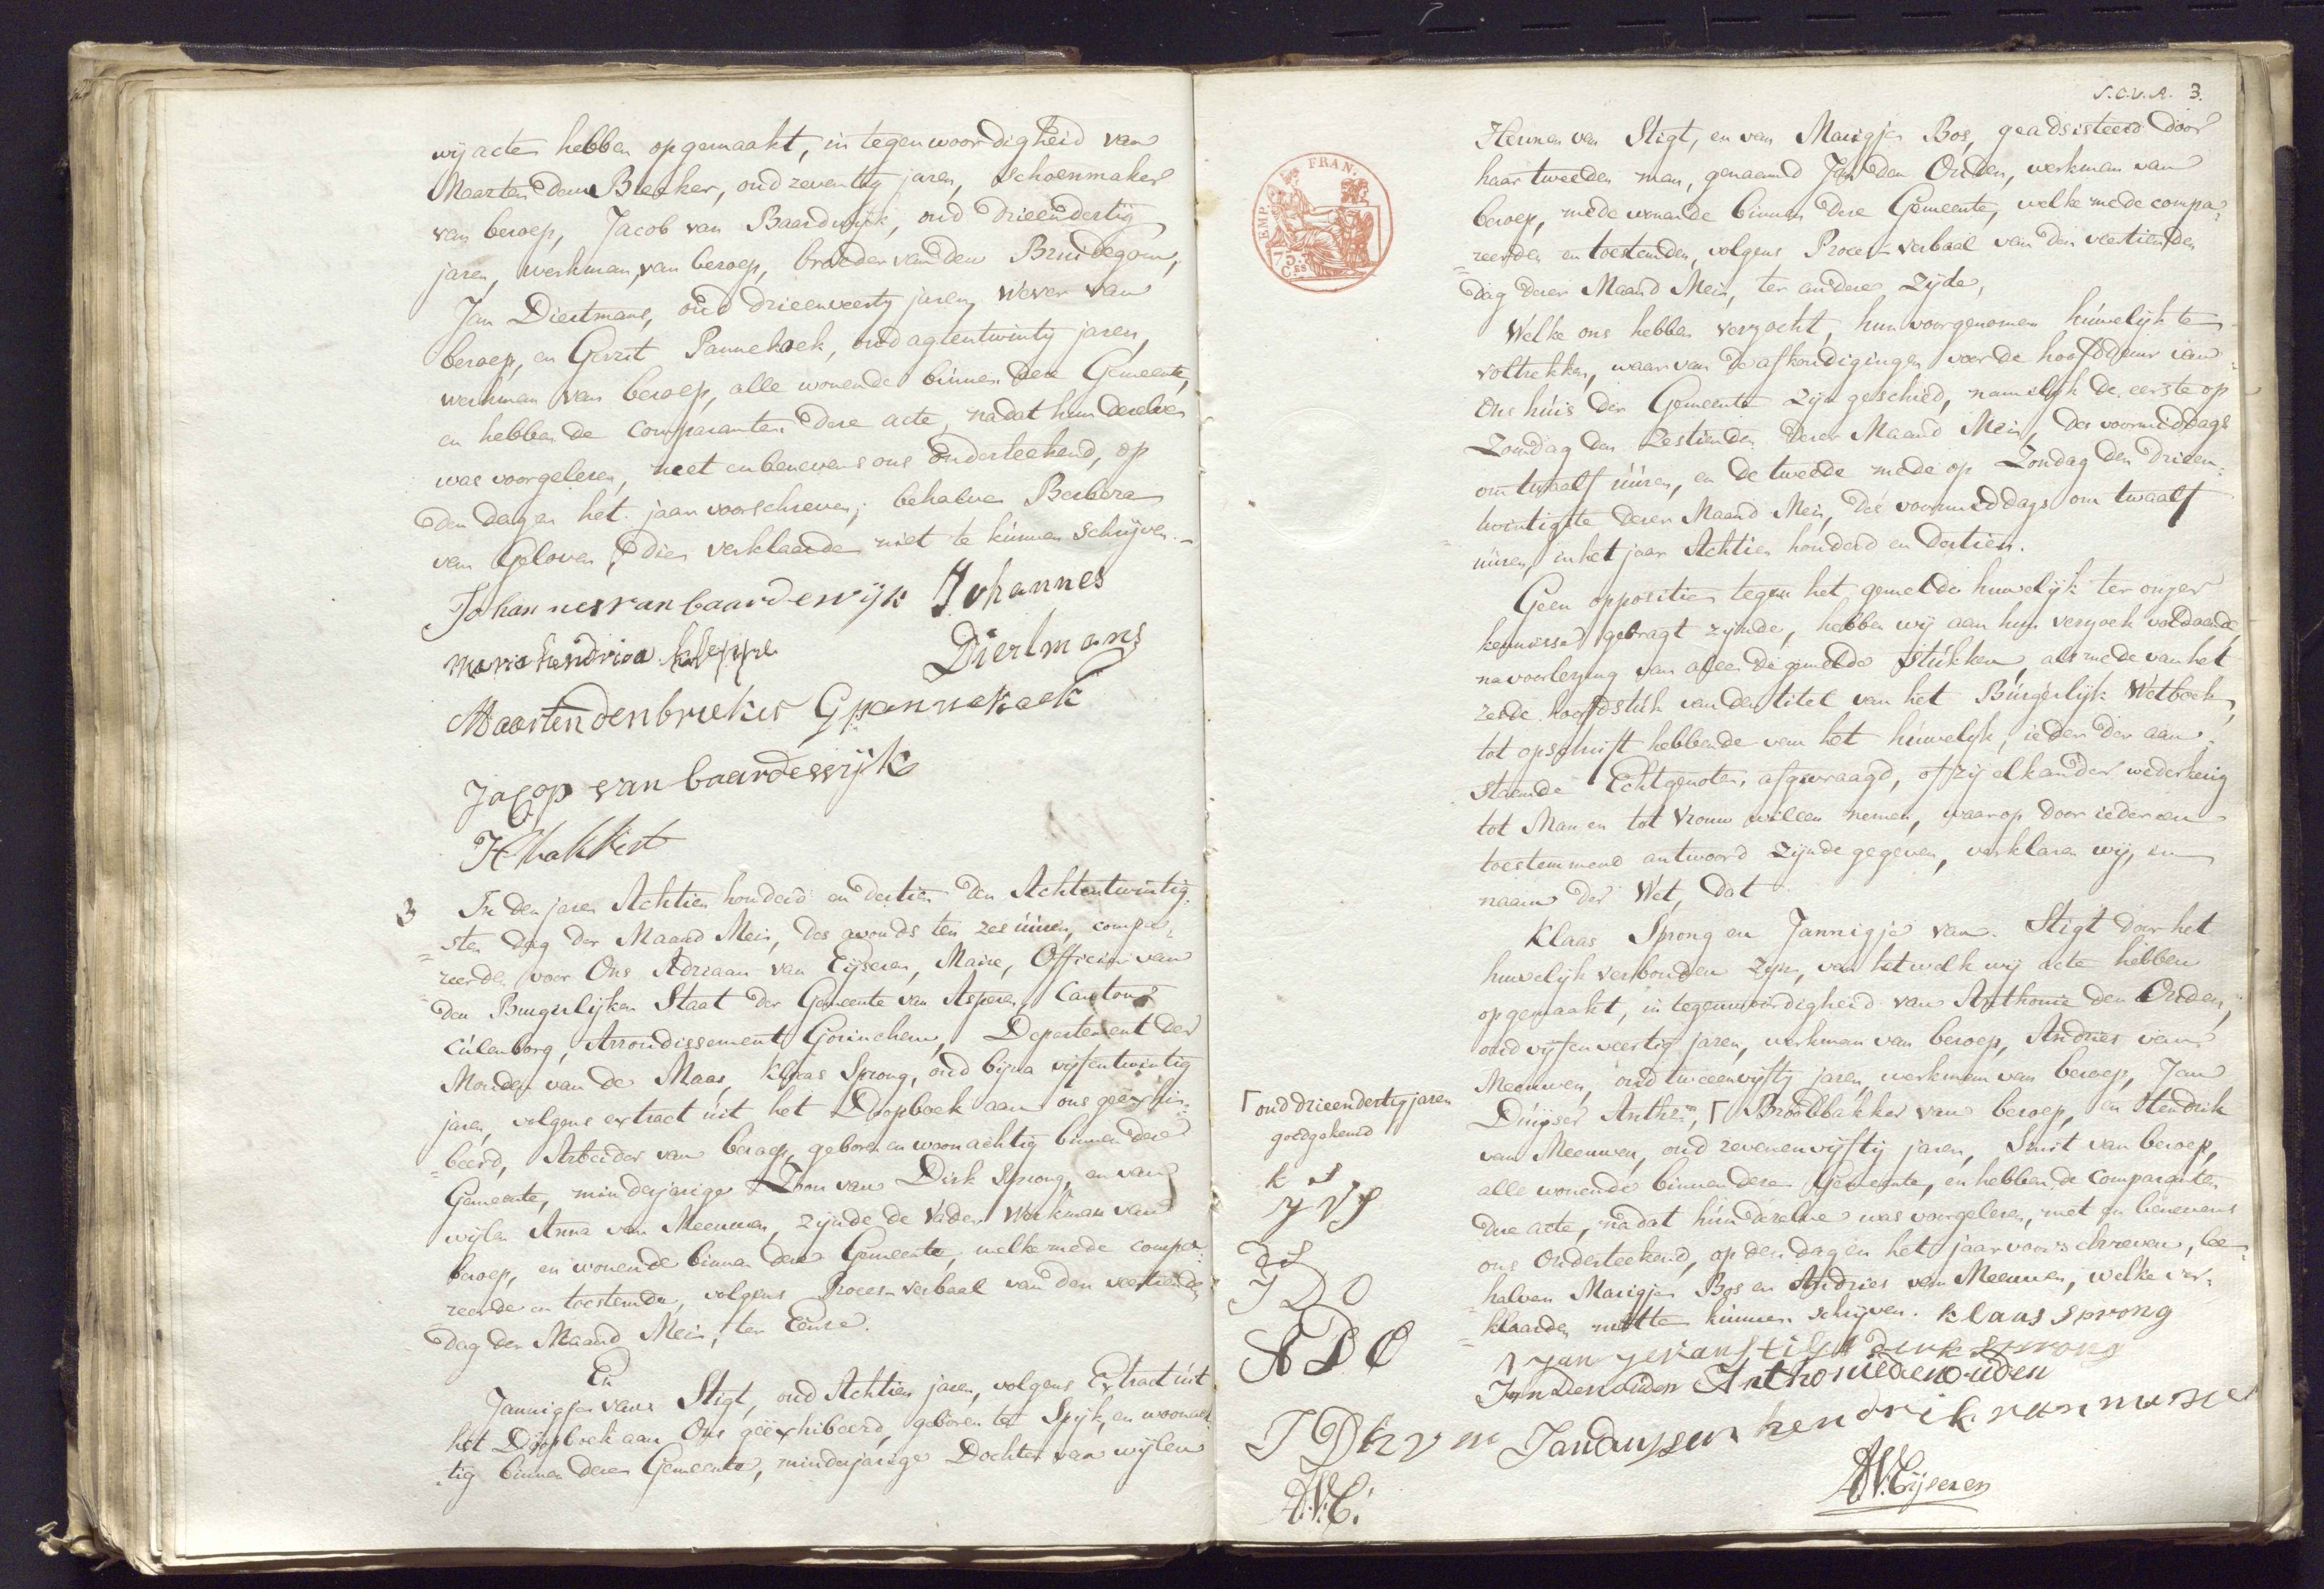 wij acte hebben opgemaakt, in tegenwoordigheid van
Maarten den Breeker, oud zeventig jaren, schoenmaker
van beroep, Jacob van Baardwijk, oud drieëndertig
jaren, werkman van beroep, broeder van den Bruidegom,
Jan Diertmans, oud drieenveertig jaren, Wever van
beroep, en Gerrit Pannekoek, oud agtentwintig jaren,
werkman van beroep, alle wonende binnen deze Gemeente,
en hebben de comparanten deze acte, na dat hun dezelve
was voorgelesen, met en benevens ons onderteekend, op
den dag en het jaar voorschreven, behalve Berbera
van Geloven, die verklaarde niet te kunnen schrijven.
Johannes van baardewijk Johannes
Diertmans
maria hendrica
Maarten den breker G pannekoek
Jacop van baardewijk
3 In den jaren Achtien honderd en dertien den Achtentwintig=
=sten dag der Maand Mei, des avonds ten zes uúren, compa=
=reerde voor Ons Adriaan van Eijseren, Maire, Officier van
den Burgerlijken Staat der Gemeente van Asperen, Canton
Cúlenborg, Arrondissement Gorinchem, Departement der
Monden van de Maas, Klaas Sprong, oud bijna vijfentwintig
jaren, volgens extract úit het Doopboek aan ons geëxhi=
=beerd, Arbeider van beroep, geboren en woonachtig binnen deze
Gemeente, minderjarige Zoon van Dirk Sprong, en van
wijlen Anna van Meeuwen, zijnde de Vader Werkman van
beroep, en wonende binnen deze Gemeente, welke mede compa=
reerde en toestemde, volgens Proces-verbaal van den veertienden
dag der Maand Mei, ter Eenre.
En
Jannigje van Stigt, oud Achtien jaren, volgens Extract úit
het Doopboek aan Ons geëxhibeerd, geboren te Spijk, en woonach=
=tig binnen deze Gemeente, minderjarige Dochter van wijlen
S.C.V.A. 3.
EMP. FRAN.
75.
C.ES
Hermen van Stigt, en van Marigje Bos, geadsisteerd door
haar tweeden man, genaamd Jan den Ouden, werkman van
beroep, mede wonende binnen deze Gemeente, welke mede compa=
=reerden en toestemden, volgens Proces-verbaal van den veertienden
dag dezer Maand Mei, ter andere zijde,
Welke ons hebben verzocht, hun voorgenomen húwelijk te
voltrekken, waar van de afkondigingen voor de hoofddeur van
Ons húis der Gemeente zijn geschied, namelijk de eerste op
Zondag den Zestienden dezer Maand Mei, des voormiddags
om twaalf úúren, en de tweede mede op Zondag den drieen=
twintigste dezer Maand Mei, des voormiddags om twaalf
úúren, in het jaar Achtien honderd en dertien.
Geen oppositie tegen het gemelde huwelijk ter onzer
kennisse gebragt zijnde, hebben wij aan hun verzoek voldoende,
na voorlezing van alle de gemelde stúkken, als mede van het
zesde hoofdstúk van den titel van het Búrgerlijk Wetboek,
tot opschrift hebbende van het húwelijk, ieder der aan=
staende Echtgenoten afgevraagd, of zij elkander wederkerig
tot Man en tot Vrouw willen nemen, waar op door ieder een
toestemmend antwoord zijnde gegeven, verklaren wij, in
naam der Wet, dat
Klaas Sprong en Jannigje van Stigt door het
huwelijk verbonden zijn, van hetwelk wij acte hebben
opgemaakt, in tegenwoordigheid van Anthonie den Ouden,
oud vijfenveertig jaren, werkman van beroep, Andries van
Meeuwen, oud tweeenvijftig jaren, werkman van beroep, Jan
Dúijser Anthz.n, Γ Broodbakker van beroep, en Hendrik
van Meeuwen, oud zevenenvijftig jaren, Smit van beroep,
alle wonende binnen deze Gemeente, en hebben de comparanten
deze acte, na dat hún dezelve was voorgelezen, met en benevens
ons Onderteekend, op den dag en het jaar voorschreven, be=
halven Marigje Bos en Andries van Meeuwen, welke ver=
klaarden niet te kúnnen schrijven. klaas sprong
Γ oud drieendertig jaren
goedgekeurd
k s
J V S
D S
J D O
A D O
J D h v m
A.V.E.
Janigje van stigt dirk sprong
Jan den ouden Anthonie den ouden
Jan duyser hendrik van meeuwen
A.V. Eijseren